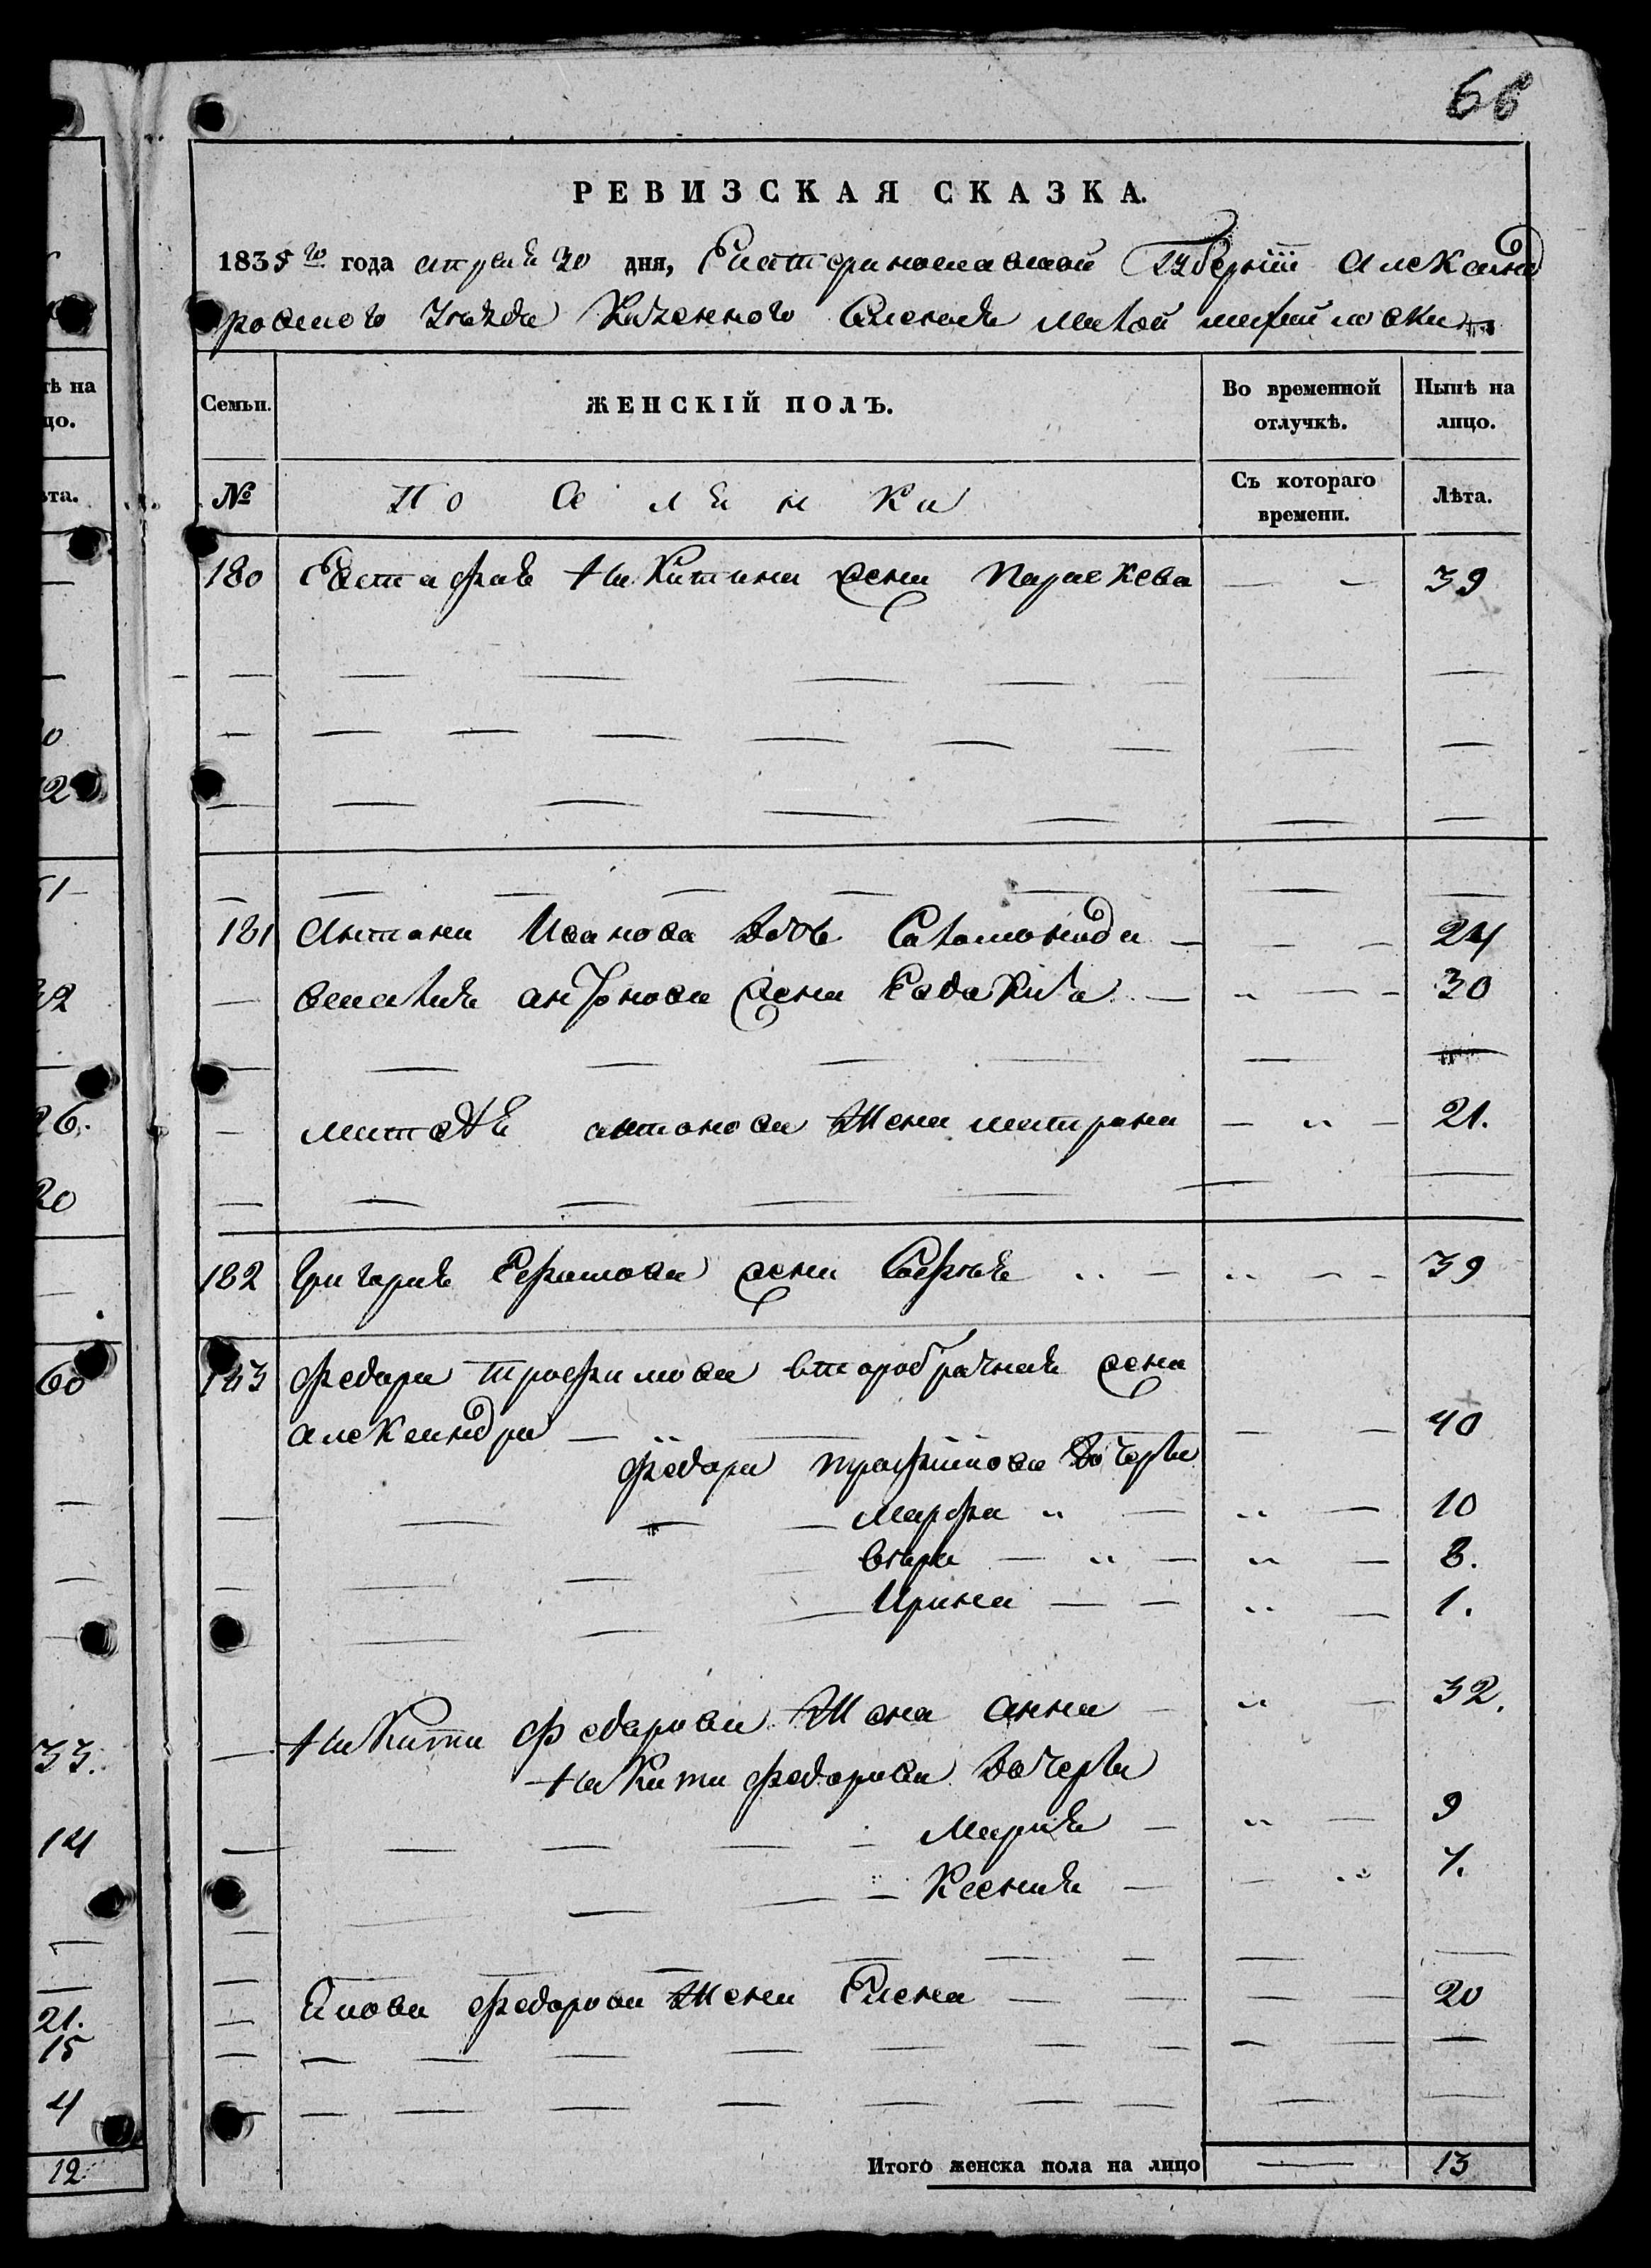 68
РЕВИЗСКАЯ СКАЗКА.
1835 го года апреля 30 дня, Екатеринославской Губернии Александ
ровского Уезда Казенного Селения Малой михайловки
Семьи. ЖЕНСКІЙ ПОЛЪ. Во временной отлучкѣ. Нынѣ на лицо.
№ Поселенки Съ котораго времени. Лѣта.
180 Евстафия Никитина жена Параскева 39
181 Антона Иванова дочь Саломонида 24
василия антонова жена Евдокия 30
матвея антонова жена матрона 21.
182 Григория Ефимова жена София 39
183 федора трофимова второбрачная жена
александра 40
федора трофимова дочери
марфа 10
вера 8.
Ирина 1.
Никиты федорова жена анна 32.
Никиты федорова дочери
Мария 9
Ксения 7.
Якова федорова жена Елена 20
Итого женска пола на лицо 13
тѣ на
цо.
ѣта.
0
2
51
32
26.
20
60
33.
14
21.
15
4
12.